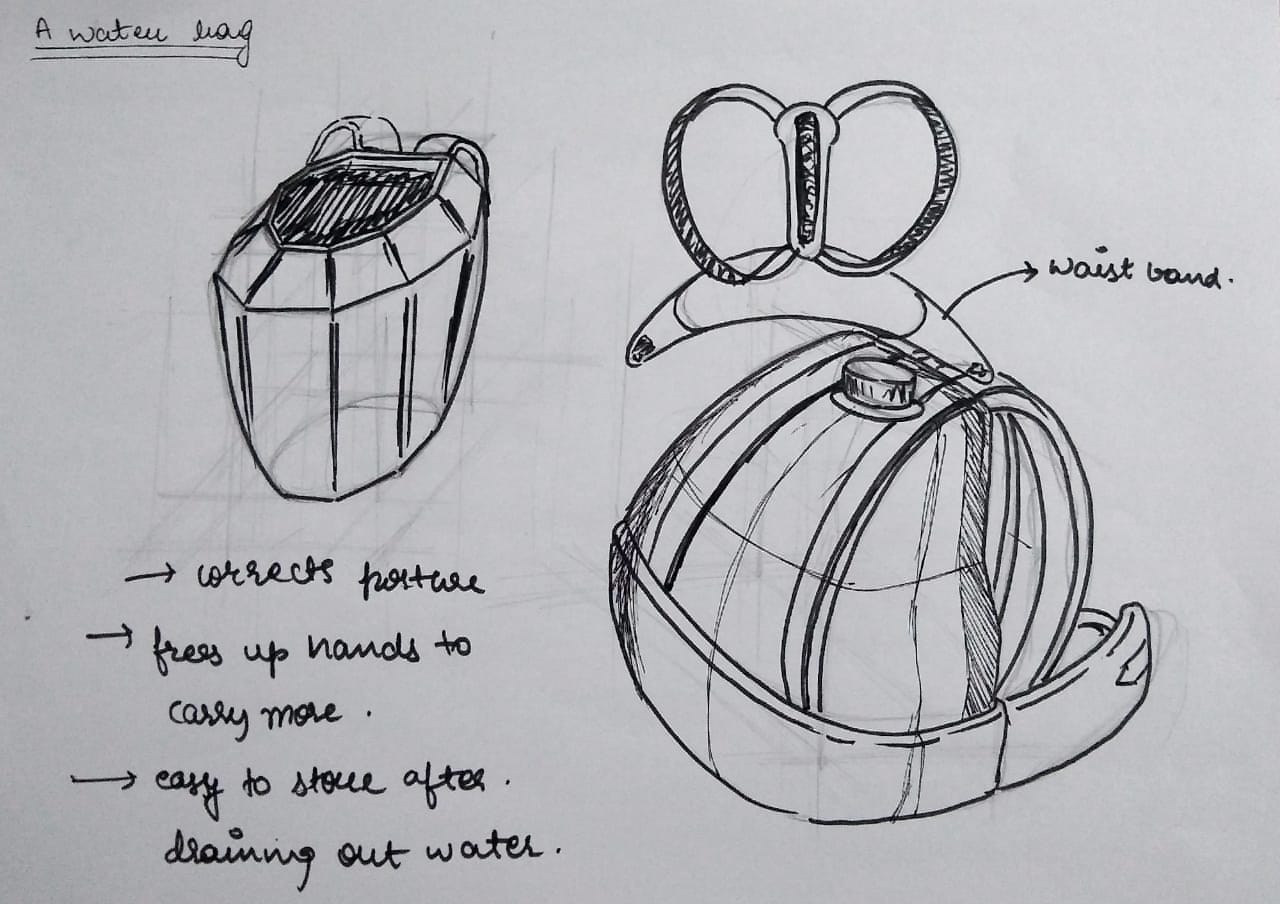 A water bag
waist band.
→ corrects posture
→ frees up hands to
carry more.
→ easy to store after.
draining out water.